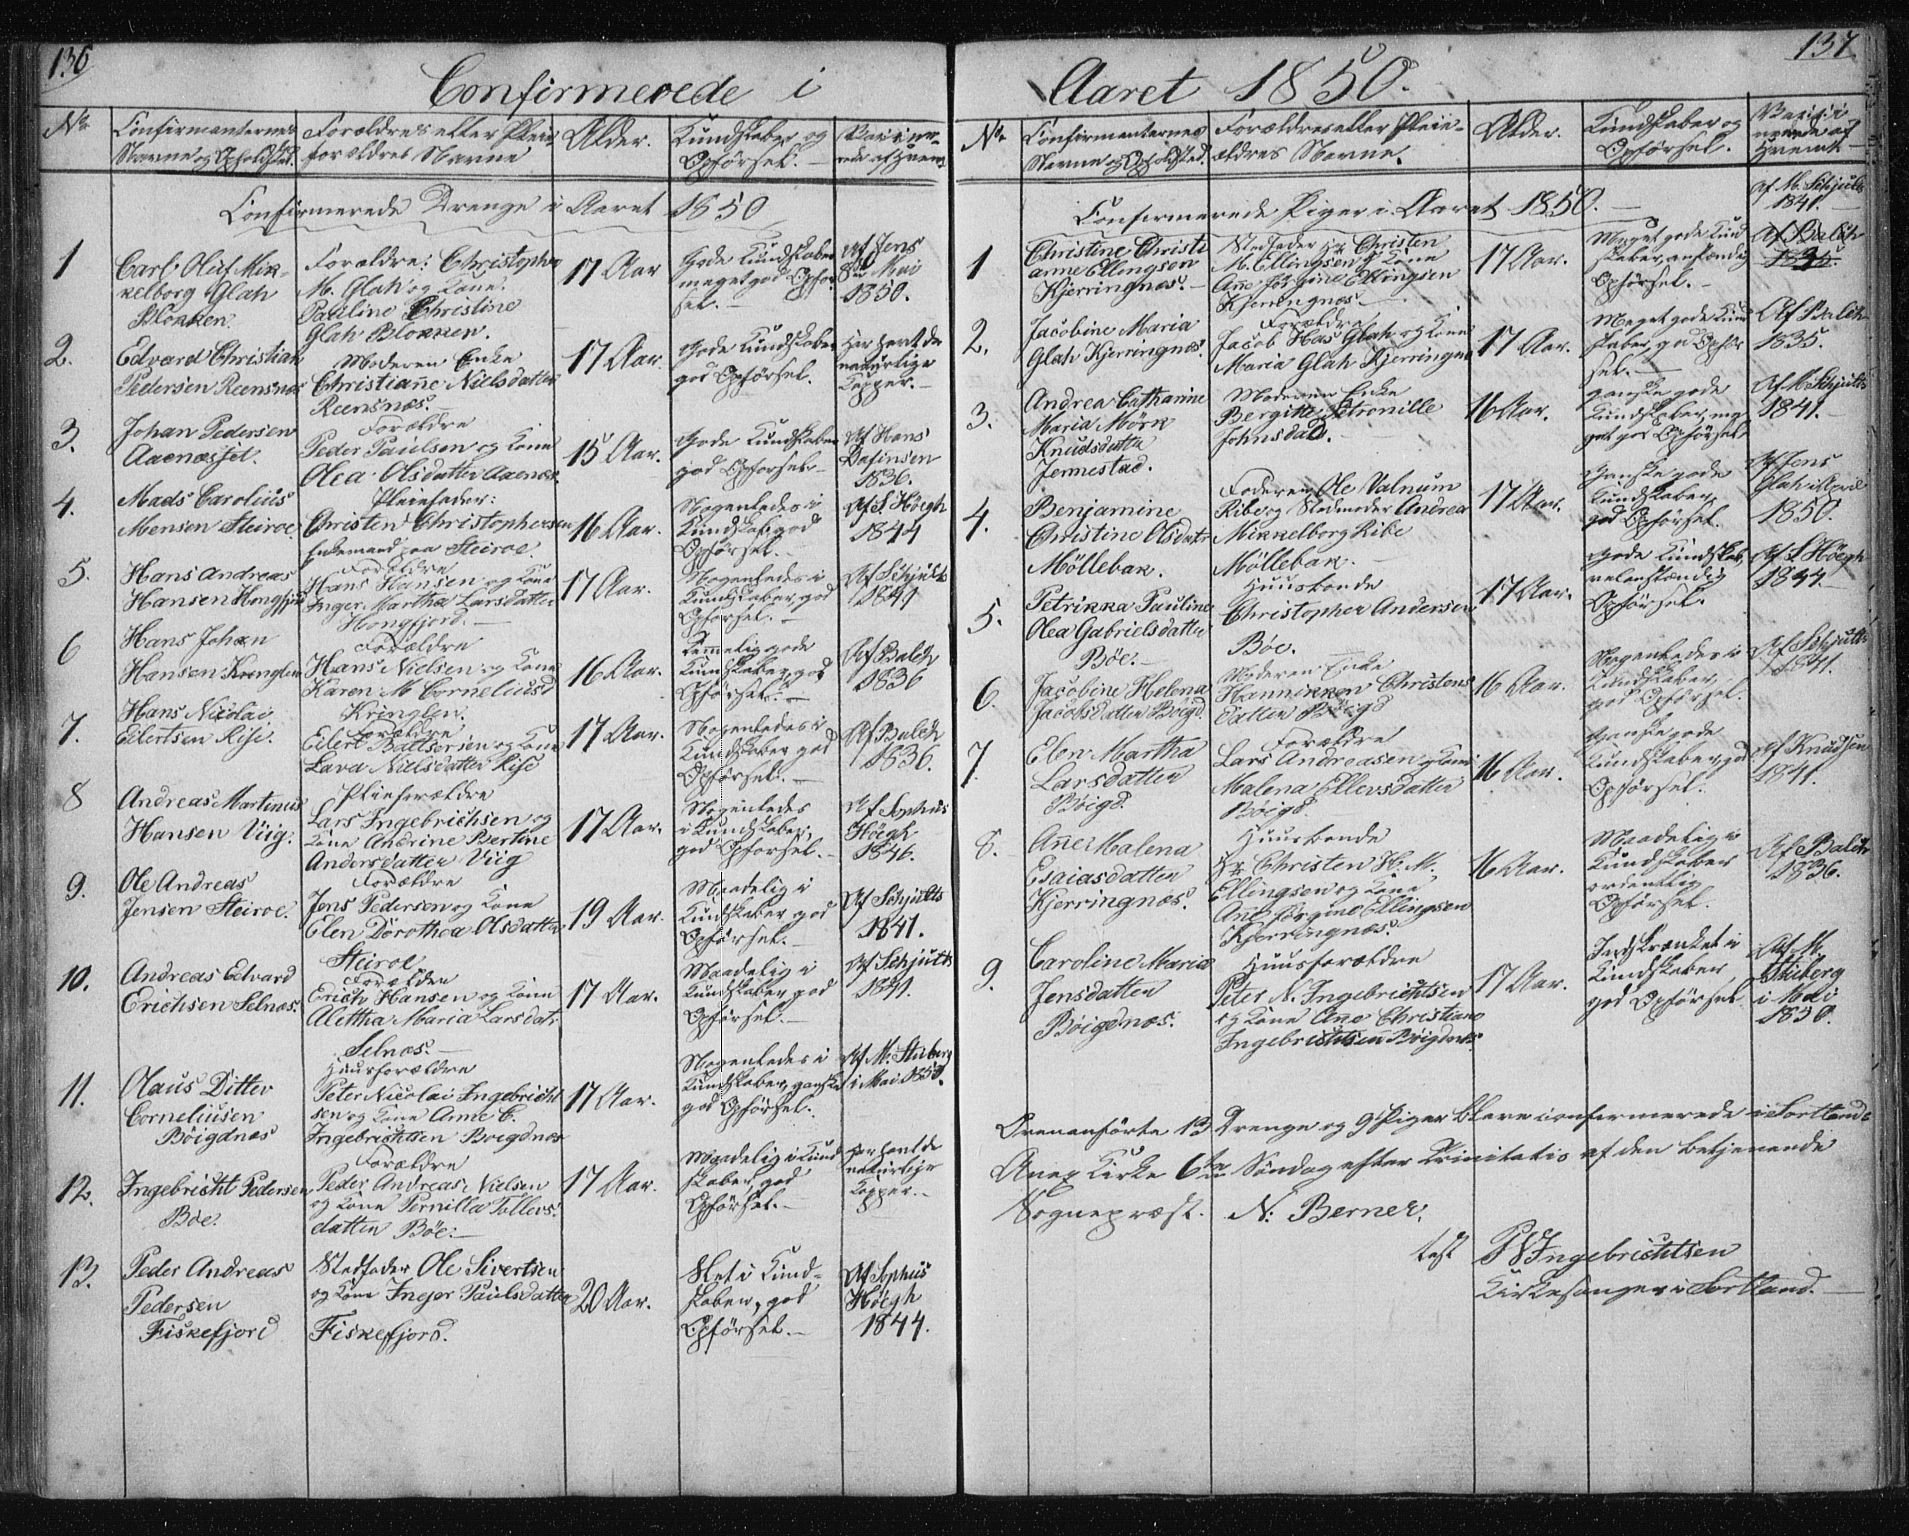 136
Confirmerede i
No
Confirmanternes
Navne og Opholdsted.
Forældres eller Pleie-
forældres Navne
Alder.
Kundskaber og
Opførsel. —
Vaccine-
rede af hvem
Confirmerede Drenge i Aaret 1850
1
Carl Oluf Mik-
kelborg Glah
Blokken.
Forældre: Christopher
M. Glah og Kone
Pauline Christine
Glah Blokken.
17 Aar
Gode Kundskaber
meget god Opfør-
sel.
af Jens
Mai
1850.
2.
Edvard Christian
Pedersen Reensnæs
Moderen Enke
Christiane Nielsdatter
Reensnæs.
17 Aar.
Gode Kundskaber
god Opførsel.
Har havt de
naturlige
Kopper. —
3.
Johan Pedersen
Aaenæsset.
Forældre
Peder Paulsen og Kone
Olea Olsdatter Aaenæs.
15 Aar.
Gode Kundskaber
god Opførsel. —
Af Hans
1836.
4.
Mads Carolius
Monsen Steiroe.
Pleiefader:
Christen Christophersen
Enkemand paa Steiroe.
16 Aar.
Nogenledes i
Kundskab, god
Opførsel. —
Af S Höegh
1844
5.
Hans Andreas
Hansen Hongfjord
Forældre
Hans Hansen og Kone
Inger Martha Larsdatter
Hongfjord. —
17 Aar.
Nogenledes i
Kundskaber, god
Opførsel. —
Af Schjult
1841
6
Hans Johan
Hansen Kringlen
Forældre
Hans Nielsen og Kone
Karen M Corneliusd
Kringlen.
16 Aar.
Temmelig gode
Kundskaber, god
Opførsel. —
Af Balch
1836
7.
Hans Nicolai
Eilertsen Rise.
Forældre
Eilert Baltsersen og Kone
Lava Nielsdatter Rise
17 Aar.
Nogenledes i
Kundskaber god
Opførsel. —
Af Balch
1836.
8
Andreas Martinus
Hansen Viig.
Pleieforældre
Lars Ingebrichtsen og
Kone Andrine Bertine
Andersdatter Viig
17 Aar.
Nogenledes
i Kundskaber,
god Opførsel. —
Af Sophus
Höegh
1846.
9.
Ole Andreas
Jensen Steiroe.
Forældre
Jens Pedersen og Kone
Elen Dorothea Olsdatter
Steiroe
19 Aar.
Maadelig i
Kundskaber god
Opførsel. —
Af Schjults
1841.
10.
Andreas Edvard
Erichsen Selnæs.
Forældre
Erich Hansen og Kone
Alettha Maria Larsdatr
Selnæs. —
17 Aar.
Maadelig i
Kundskaber god
Opførsel. —
Af Schjults
1841.
11.
Olaus Ditlev
Corneliusen
Böigdnæs
Huusforældre
Peter Nicolai Ingebricht
sen og Kone Anne C.
Ingebrichtsen Böigdnæs
17 Aar.
Nogenledes i
Kundskaber, ganske
god Opførsel.
Af M. Stuberg
i Mai 1850.
12.
Ingebricht Pedersen
Böe.
Forældre
Peder Andreas Nielsen
og Kone Pernilla Tollevs-
datter Böe. —
17 Aar.
Maadelig i Kund
skaber, god
Opførsel. —
Har havt de
naturlige
Kopper. —
13.
Peder Andreas
Pedersen
Fiskefjord
Stedfader Ole Sivertsen
og Kone Inger Paulsdatter
Fiskefjord.
20 Aar.
Slet i Kund-
skaber, god
Opførsel. —
Af Sophus
Höegh
1844.
137
Aaret 1850.
No
Confirmanternes
Navne og Opholdsted.
Forældres eller Pleie-
ældres Navne.
Alder.
Kundskaber og
Opførsel.
Vacci-
nerede af
hvem
Confirmerede Piger i Aaret 1850. —
1
Christine Christi
anne Ellingsen
Kjerringnæs. —
Stedfader Hr Christen
M. Ellingsen og Kone
Ane Jörgine Ellingsen
Kjerringnæs. —
17 Aar.
Meget gode Kund
skaber, anstændig
Opførsel. —
af M. Schjults
1841.
Af Balch
2.
Jacobine Maria
Glah Kjerringnæs.
Forældre
Jacob Has Glah og Kone
Maria Glah Kjerringnæs
17 Aar.
Meget gode Kund
skaber, god Opfør
sel. —
Af Balch
1835.
3.
Andrea Cathrine
Maria Mörk
Knudsdatter
Jennestad.
Moderen Enke
Bergitte Petronille
Johnsdatr.
16 Aar.
ganske gode
Kundskaber, me
get god Opførsel
Af M Schjults
1841. —
4.
Benjamine
Christine Olsdatr
Möllebak.
Faderen Ole Valnum
Ribe og Stedmoder Andrea
Mikkelborg Ribe
Möllebak. —
17 Aar.
Ganske gode
Kundskaber
god Opførsel.
Af Jens
Glah i April
1850.
5.
Petrikka Pauline
Olea Gabrielsdatter
Böe. —
Huusbonde
Christopher Andersen
Böe.
17 Aar.
Gode Kundskab,
velanstændig
Opførsel. —
Af S Höegh
1844.
6.
Jacobine Helena
Jacobsdatter Böigd
Moderen Enke
Hannikken Christens
datter Böigd
16 Aar.
Nogenledes i
Kundskaber,
god Opførsel.
Af Schjults
1841.
7.
Elen Martha
Larsdatter
Böigd.
Forældre
Lars Andreasen og Kone
Malena Ellevsdatter
Böigd
16 Aar.
Ganske gode
Kundskaber, god
Opførsel.
Af Knudsen
1841.
8.
Ane Malena
Esaiasdatter
Kjerringnæs.
Huusbonde
Hr Christen H. M.
Ellingsen og Kone
Ane Jörgine Ellingsen
Kjerringnæs.
16 Aar.
Maadelig i
Kundskaber
ordentlig
Opførsel.
Af Balch
1836.
9.
Caroline Maria
Jensdatter
Böigdnæs.
Huusforældre
Peter N. Ingebrichtsen
og Kone Ane Christiane
Ingebrichtsen Böigdnæs.
17 Aar.
Indskrænket i
Kundskaber
god Opførsel.
Af M.
Stuberg
i Mai
1850.
Ovenanførte 13 Drenge og 9 Piger bleve confirmerede i Sortlands
Anex Kirke 6te Söndag efter Trinitatis af den betjenende
Sognepræst. N: Berner.
test PNIngebrichtsen
Kirkesanger i Sortland. —